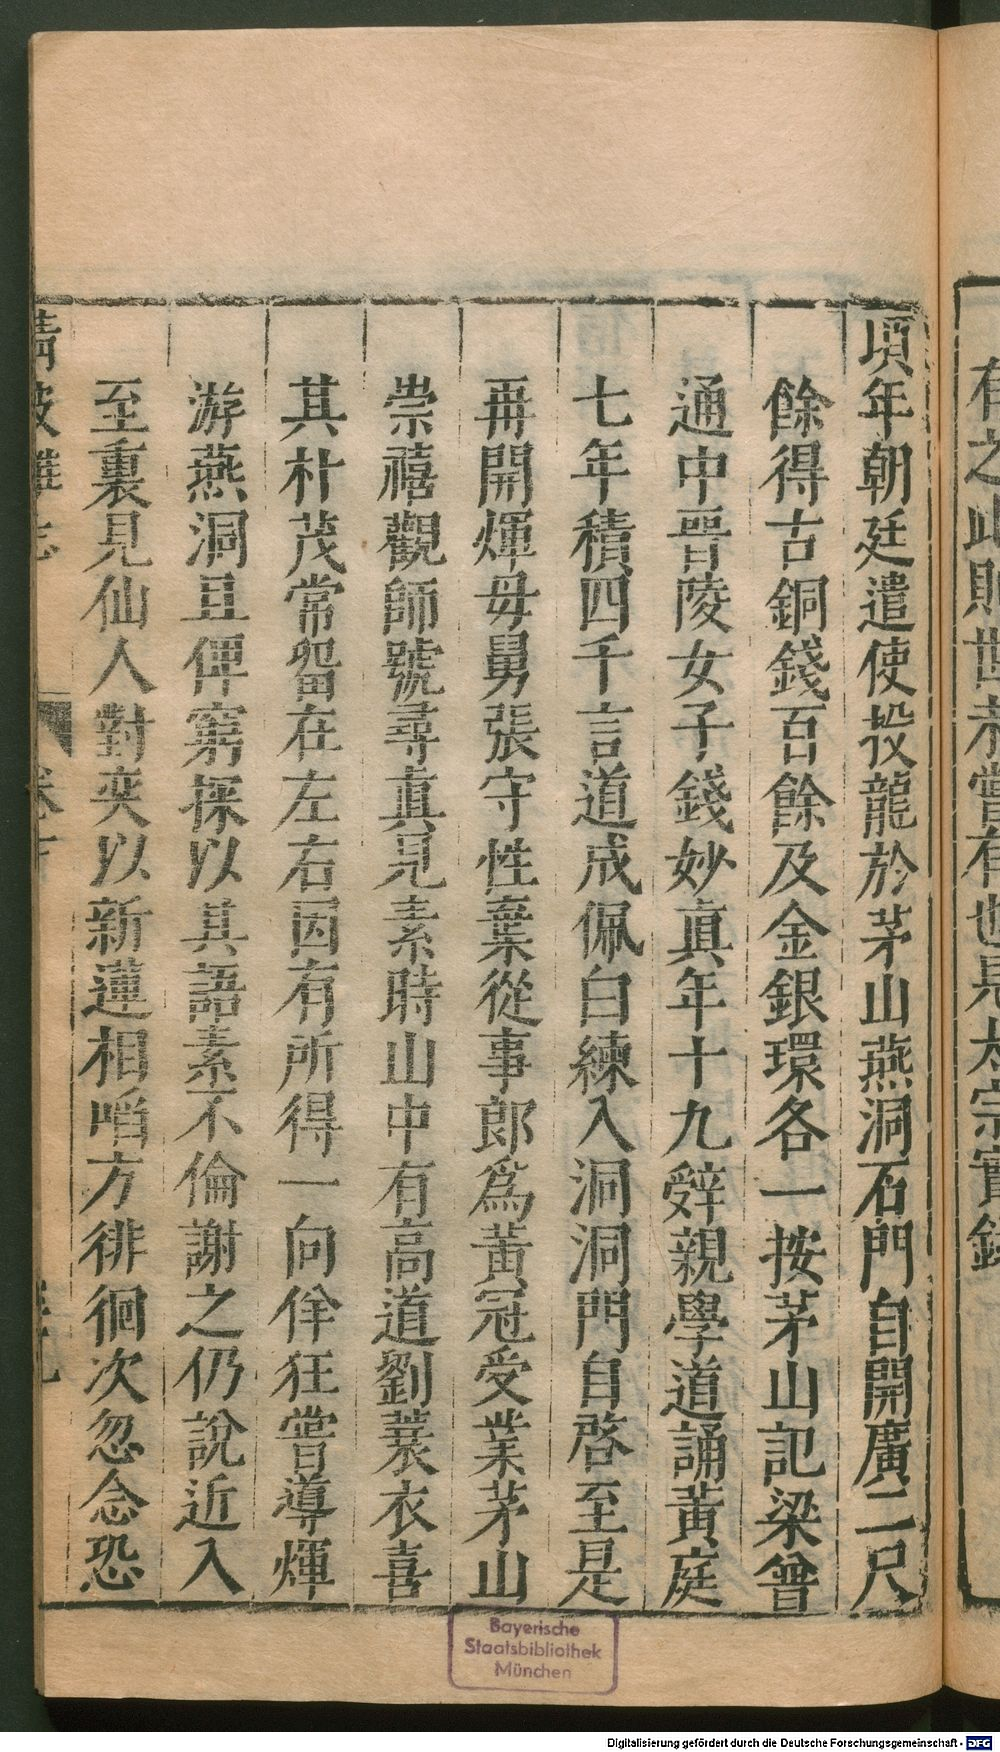 有之此則世未嘗有也見太宗實錄
項年朝廷遣使投龍於茅山燕洞石門自開廣二尺
餘得古銅錢百餘及金銀環各一按茅山記梁普
通中晋陵女子錢妙真年十九辤親學道誦黃庭
七年積四千言道成佩白練入洞洞門自啓至是
再開煇母舅張守性棄從事郎爲黃冠受業茅山
崇禧觀師號尋真見素時山中有高道劉蓑衣喜
其朴茂常留在左右因有所得一向佯狂嘗導煇
游燕洞且俾窮探以其語素不倫謝之仍說近入
至裏見仙人對奕以新蓮相啗方徘徊次忽念恐
清波雜志
Bayerische
Staatsbibliothek
München
Digitalisierung gefördert durch die Deutsche Forschungsgemeinschaft - DFG